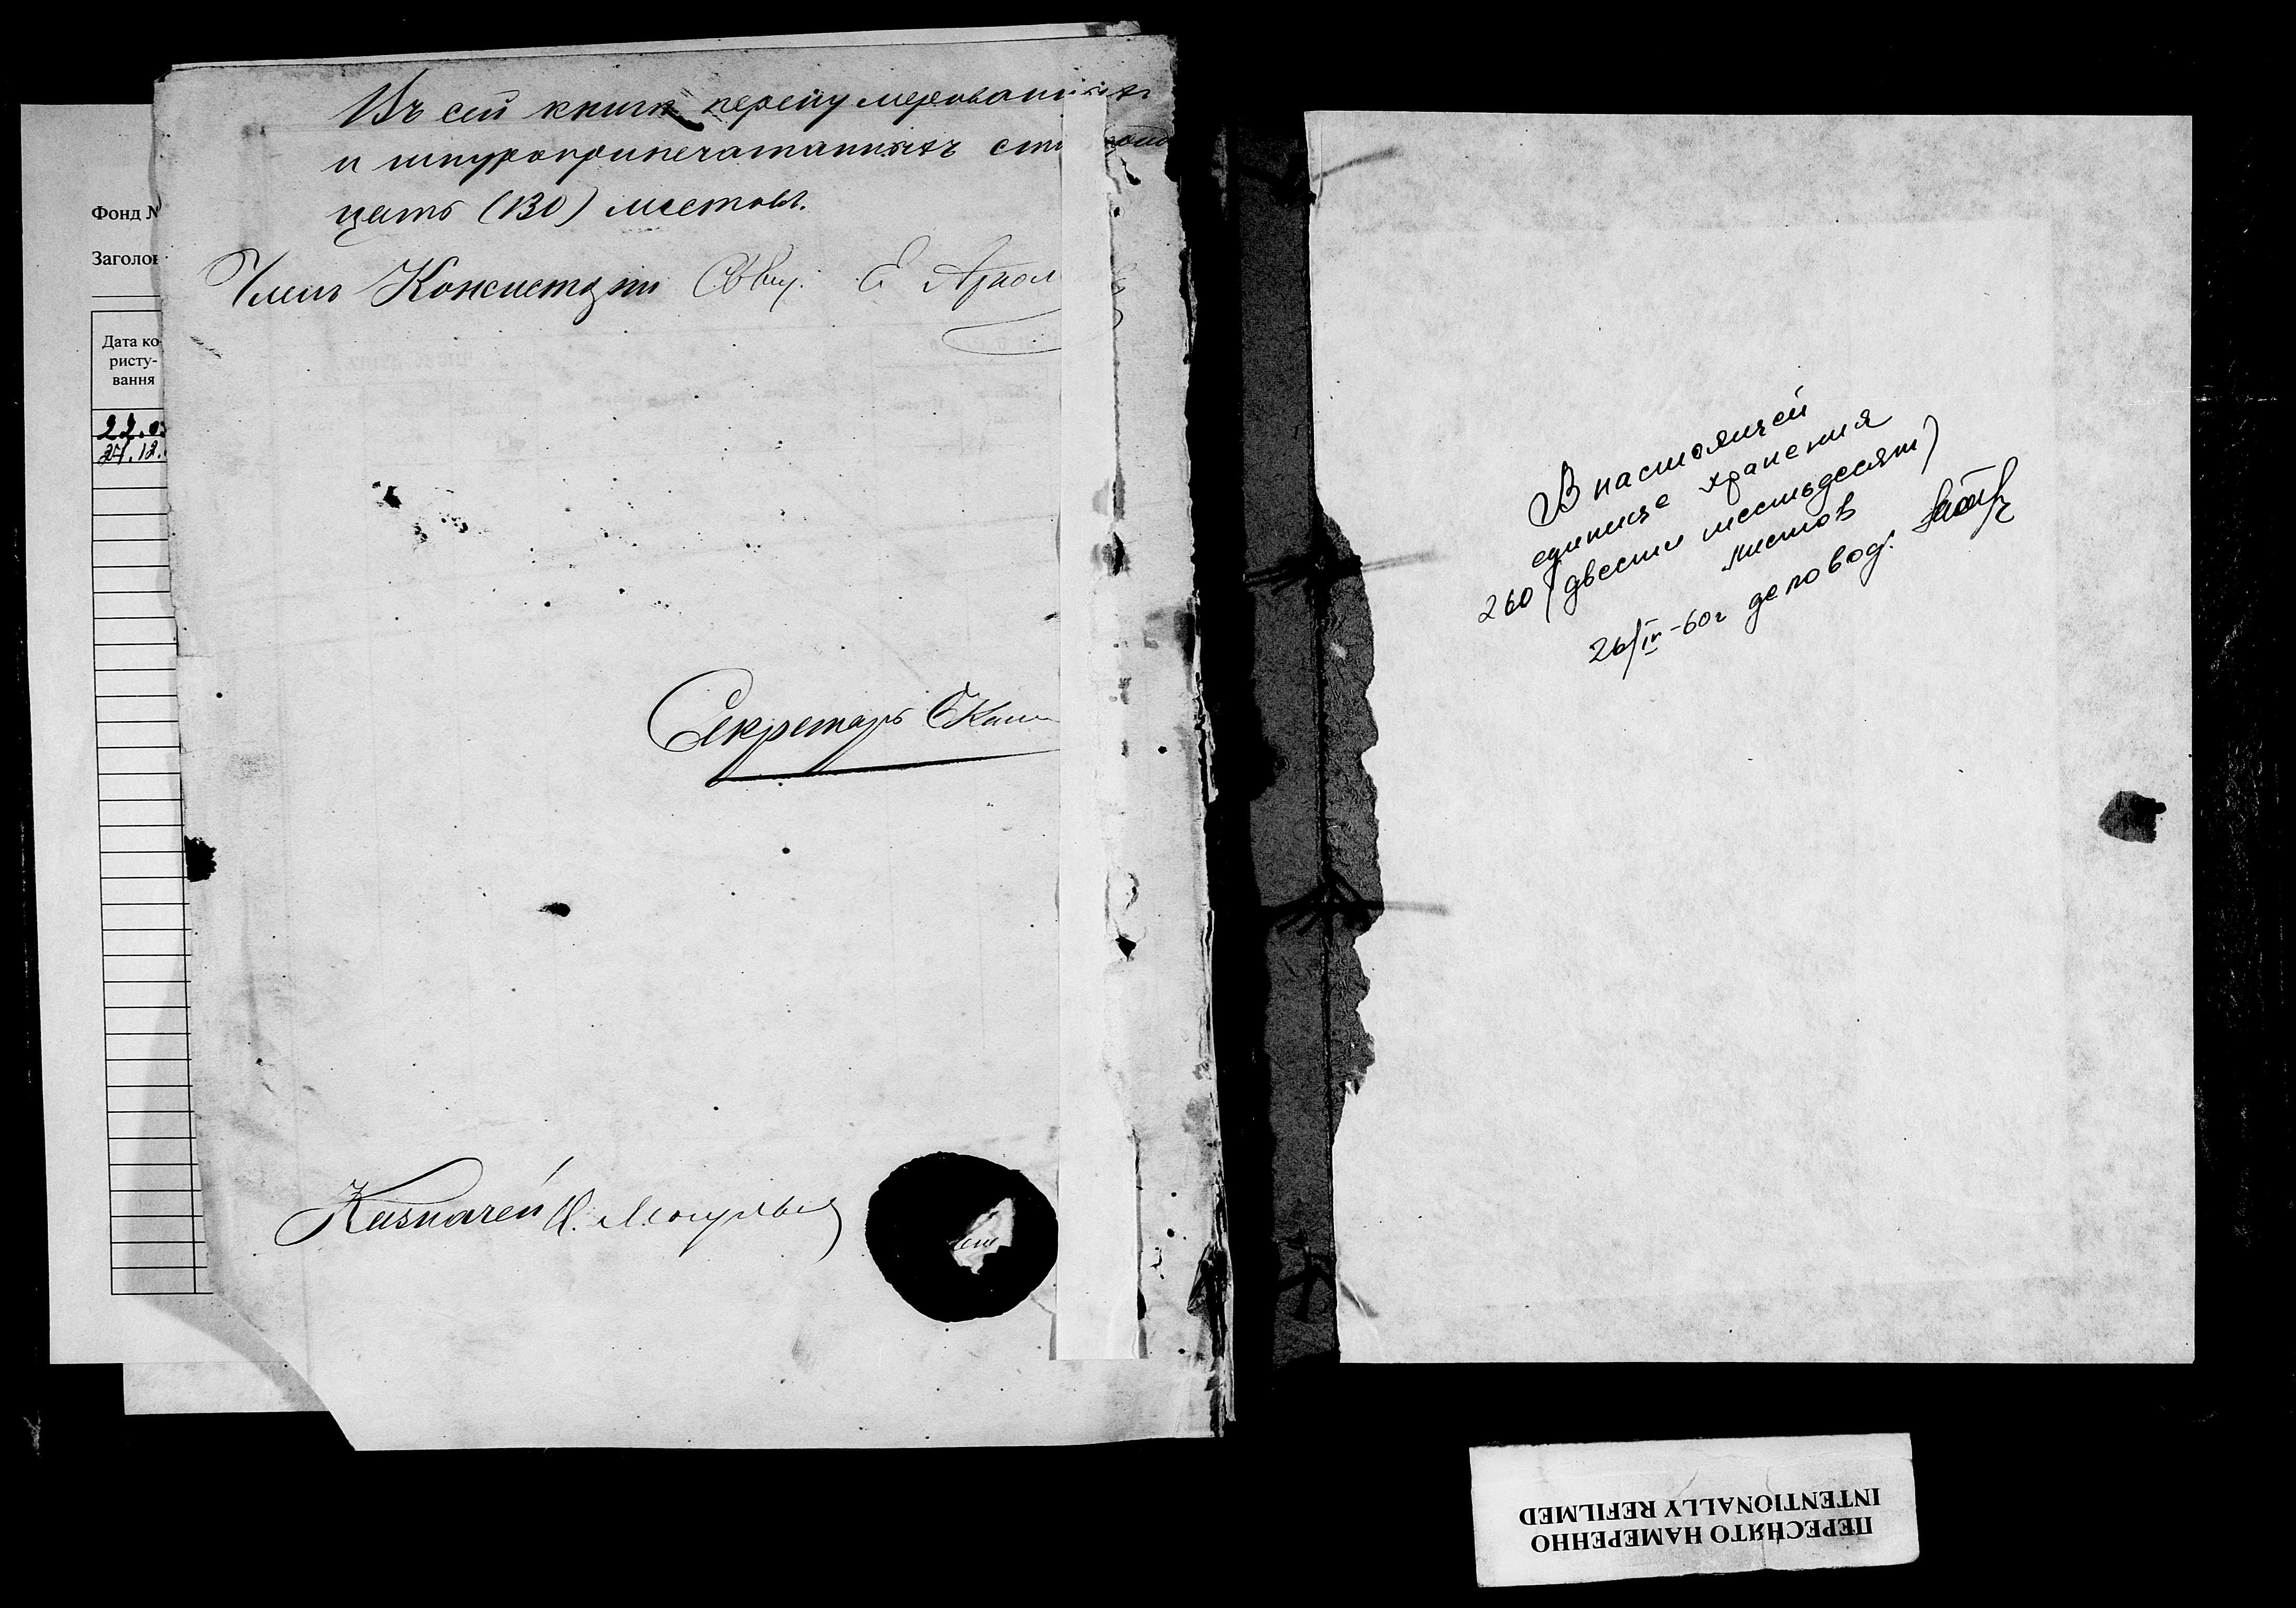 Фонд №
Заголов
Дата ко-
ристу-
вання
22.0
27.12.
Въ сей книгѣ перенумерованныхъ
и шнуроприпечатанныхъ сто
цать (130) листовъ.
Членъ Консисторіи Свящ. Е
Секретарь
Казначей
В настоящей
единице хранения
260 (двести шестьдесят)
листов
26/IV-60г деловод.
ПЕРЕСНЯТО НАМЕРЕННО
INTENTIONALLY REFILMED